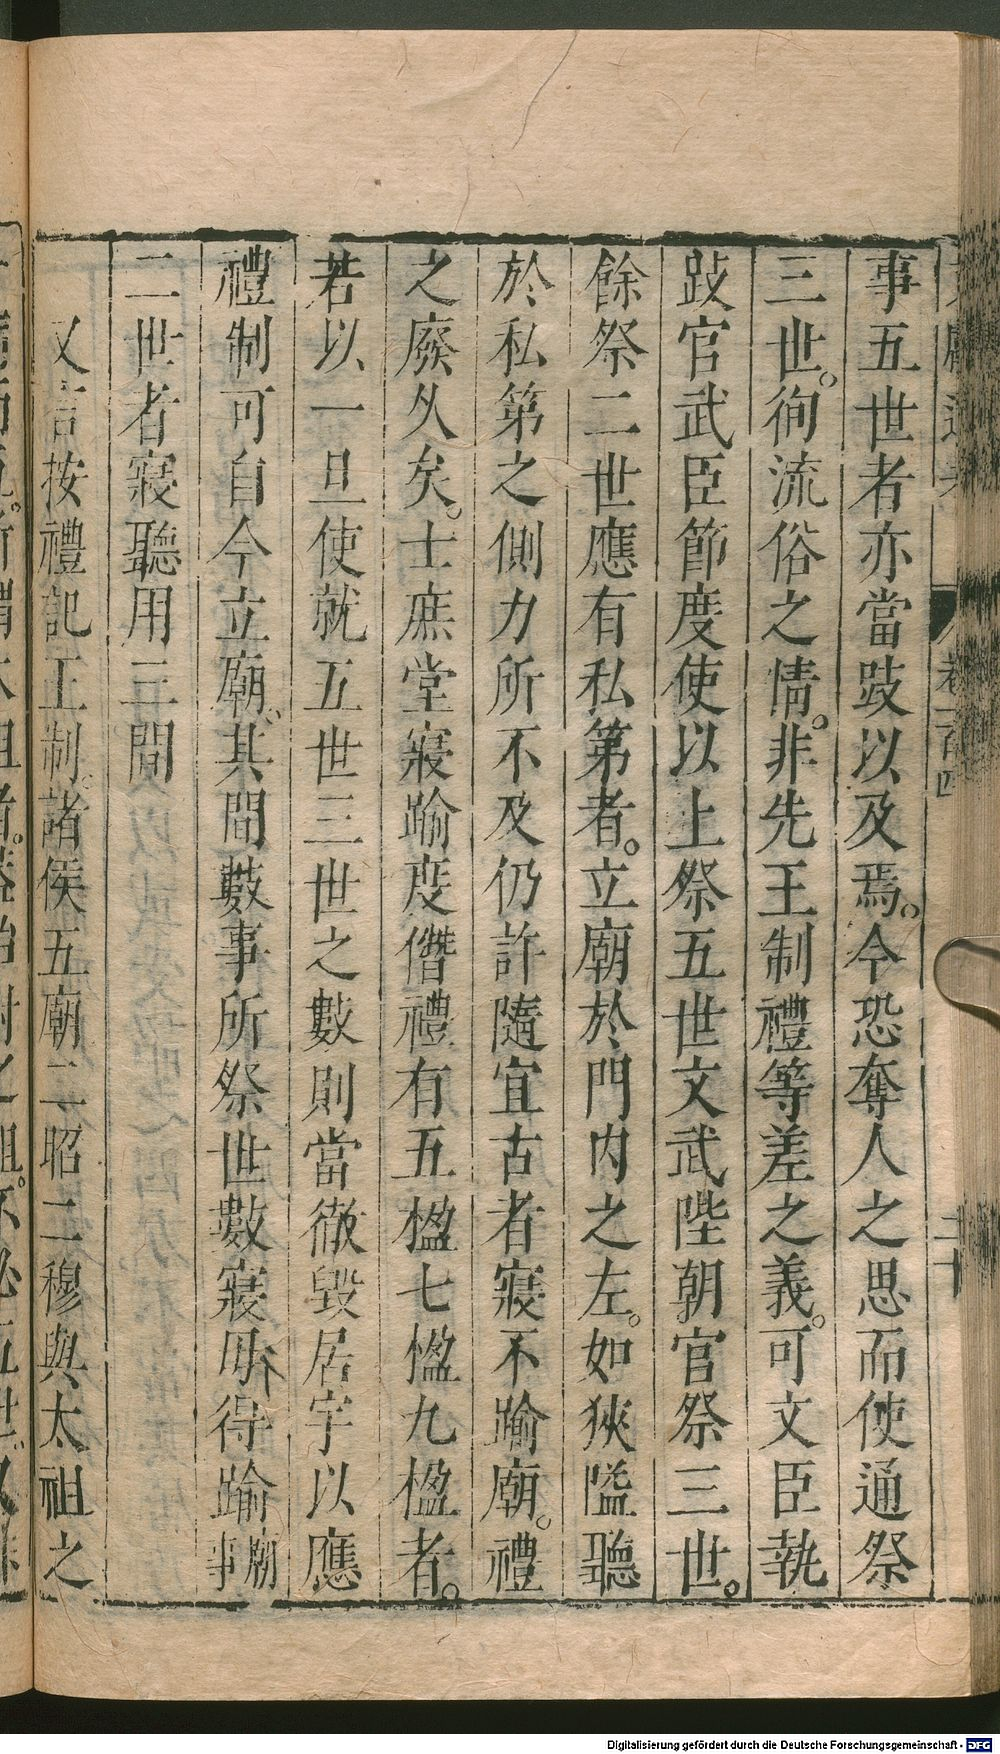 事五世者亦當跂以及焉。今恐奪人之思而使通祭
三世。徇流俗之情。非先王制禮等差之義。可文臣執
政官武臣節度使以上祭五世文武陞朝官祭三世。
餘祭二世應有私第者。立廟於門内之左。如狹隘聽
於私第之側力所不及仍許隨宜古者寢不踰廟。禮
之廢久矣。士庶堂寢踰度僭禮有五楹七楹九楹者。
若以一旦使就五世三世之數則當徹毀居宇以應
禮制可自今立廟。其間數事所祭世數寢毋得踰廟事
二世者寢聽用三間
又言按禮記王制。諸侯五廟二昭二穆與太祖之
卷一百四
二十
Digitalisierung gefördert durch die Deutsche Forschungsgemeinschaft - DFG